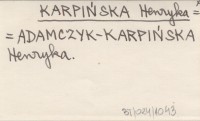 KARPIŃSKA Henryka =
= ADAMCZYK-KARPIŃSKA
Henryka.